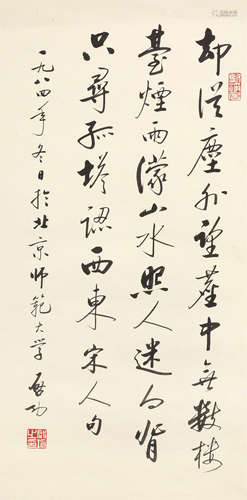 却從塵外望塵中無數樓
臺煙雨濛山水照人迷向背
只尋孤塔認西東宋人句
一九八四年冬日於北京師範大学启功